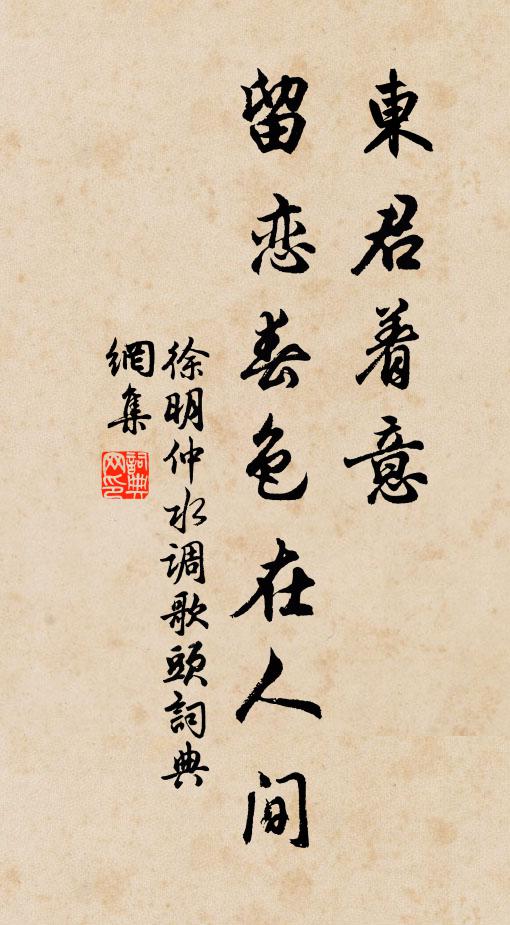 東君着意
留恋春色在人间
徐明仲水调歌頭詞典
網集
詞典网印